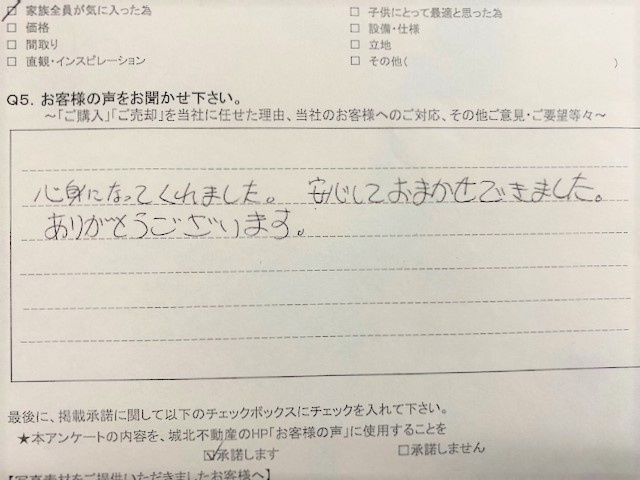 ☑ 家族全員が気に入った為 □ 子供にとって最適と思った為
□ 価格 □ 設備・仕様
□ 間取り □ 立地
□ 直観・インスピレーション □ その他( )
Q5. お客様の声をお聞かせ下さい。
～「ご購入」「ご売却」を当社に任せた理由、当社のお客様へのご対応、その他ご意見・ご要望等々～
心身になってくれました。 安心しておまかせできました。
ありがとうございます。
最後に、掲載承諾に関して以下のチェックボックスにチェックを入れて下さい。
★本アンケートの内容を、城北不動産のHP「お客様の声」に使用することを
☑承諾します □承諾しません
【写真素材をご提供いただきましたお客様へ】